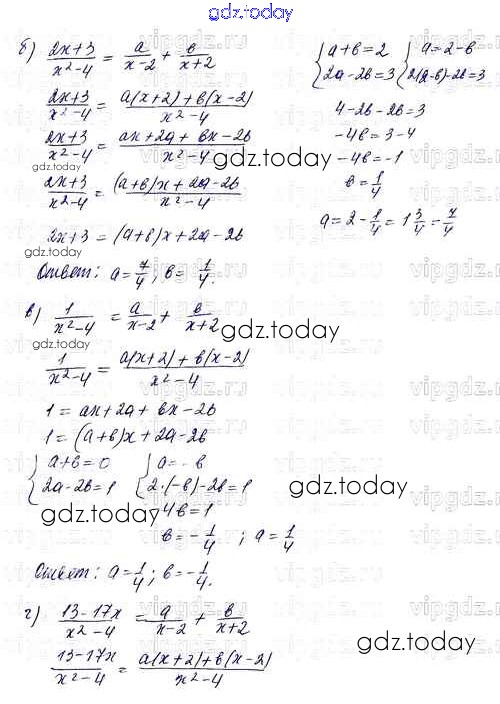 gdz.today
б) (2x+3)/(x²-4) = a/(x-2) + b/(x+2)
(2x+3)/(x²-4) = (a(x+2)+b(x-2))/(x²-4)
(2x+3)/(x²-4) = (ax+2a+bx-2b)/(x²-4)
gdz.today
gdz.today
(2x+3)/(x²-4) = ((a+b)x+2a-2b)/(x²-4)
2x+3 = (a+b)x+2a-2b
Ответ: a=7/4; b=1/4.
{ a+b=2 { a=2-b
{ 2a-2b=3 { 2(2-b)-2b=3
4-2b-2b=3
-4b=3-4
-4b=-1
b=1/4
a=2-1/4=1 3/4=7/4
в) 1/(x²-4) = a/(x-2) + b/(x+2)
gdz.today
gdz.today
1/(x²-4) = (a(x+2)+b(x-2))/(x²-4)
1=ax+2a+bx-2b
1=(a+b)x+2a-2b
{ a+b=0 { a=-b
{ 2a-2b=1 { 2·(-b)-2b=1
gdz.today
gdz.today
-4b=1
b=-1/4; a=1/4
Ответ: a=1/4; b=-1/4.
г) (13-17x)/(x²-4) = a/(x-2) + b/(x+2)
gdz.today
(13-17x)/(x²-4) = (a(x+2)+b(x-2))/(x²-4)